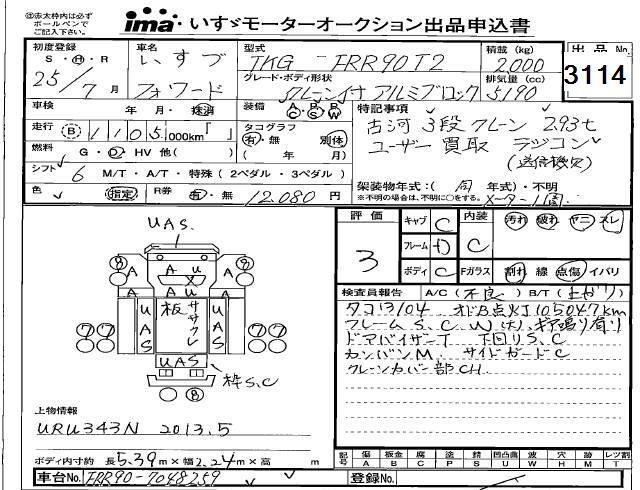 ㊟赤太枠内は必ず
ボールペンで
ご記入下さい。
ima いすゞモーターオークション出品申込書
初度登録 S・H・R 25/7月
車名 いすづ フォワード
型式 TKG-FRR90T2
積載(kg) 2,000
出品No. 3114
グレード・ボディ形状 クレーン付 アルミブロック
排気量(cc) 5190
車検 年・月・抹消
装備 A C B S R W
特記事項
古河 3段 クレーン 2.93t
ユーザー買取 ラジコン
走行 B 1 1 0 5 000km「 」
タコグラフ 有・無 別体 ( 年 月)
燃料 G・D・HV 他( )
シフト 6 M/T・A/T・特殊(2ペダル・3ペダル)
架装物年式:( 同 年式)・不明
※不明の場合は、不明に○をする。
色 指定 R券 有・無 12,080円
評価 3
キャブ C
フレーム D
ボディ C
内装 C
汚れ 破れ ヤニ スレ
Fガラス 割れ 線 点傷 イバリ
検査員報告 A/C(不良)B/T(上がり)
タコ13/04 オドB点灯105047km
フレームS、C、W(大)、ギア鳴り有り
ドアバイザーT 下回りS、C
カンバンM、サイドガードC
クレーンカバー部CH
UAS.
8 8
A A U A
A A U A
7 7 UAS 板 ササクレ UAS 7 7
UAS
枠S、C
8
上物情報
URU343N 2013.5
ボディ内寸約 長5.39m×幅2.24m×高 m
記号 傷 A 板金 B 腐 C 塗 P 錆 S 凹凸曲 U 波 W 穴 H 跡 M レツ割 T
車台No. FRR90-7048259
登録No.